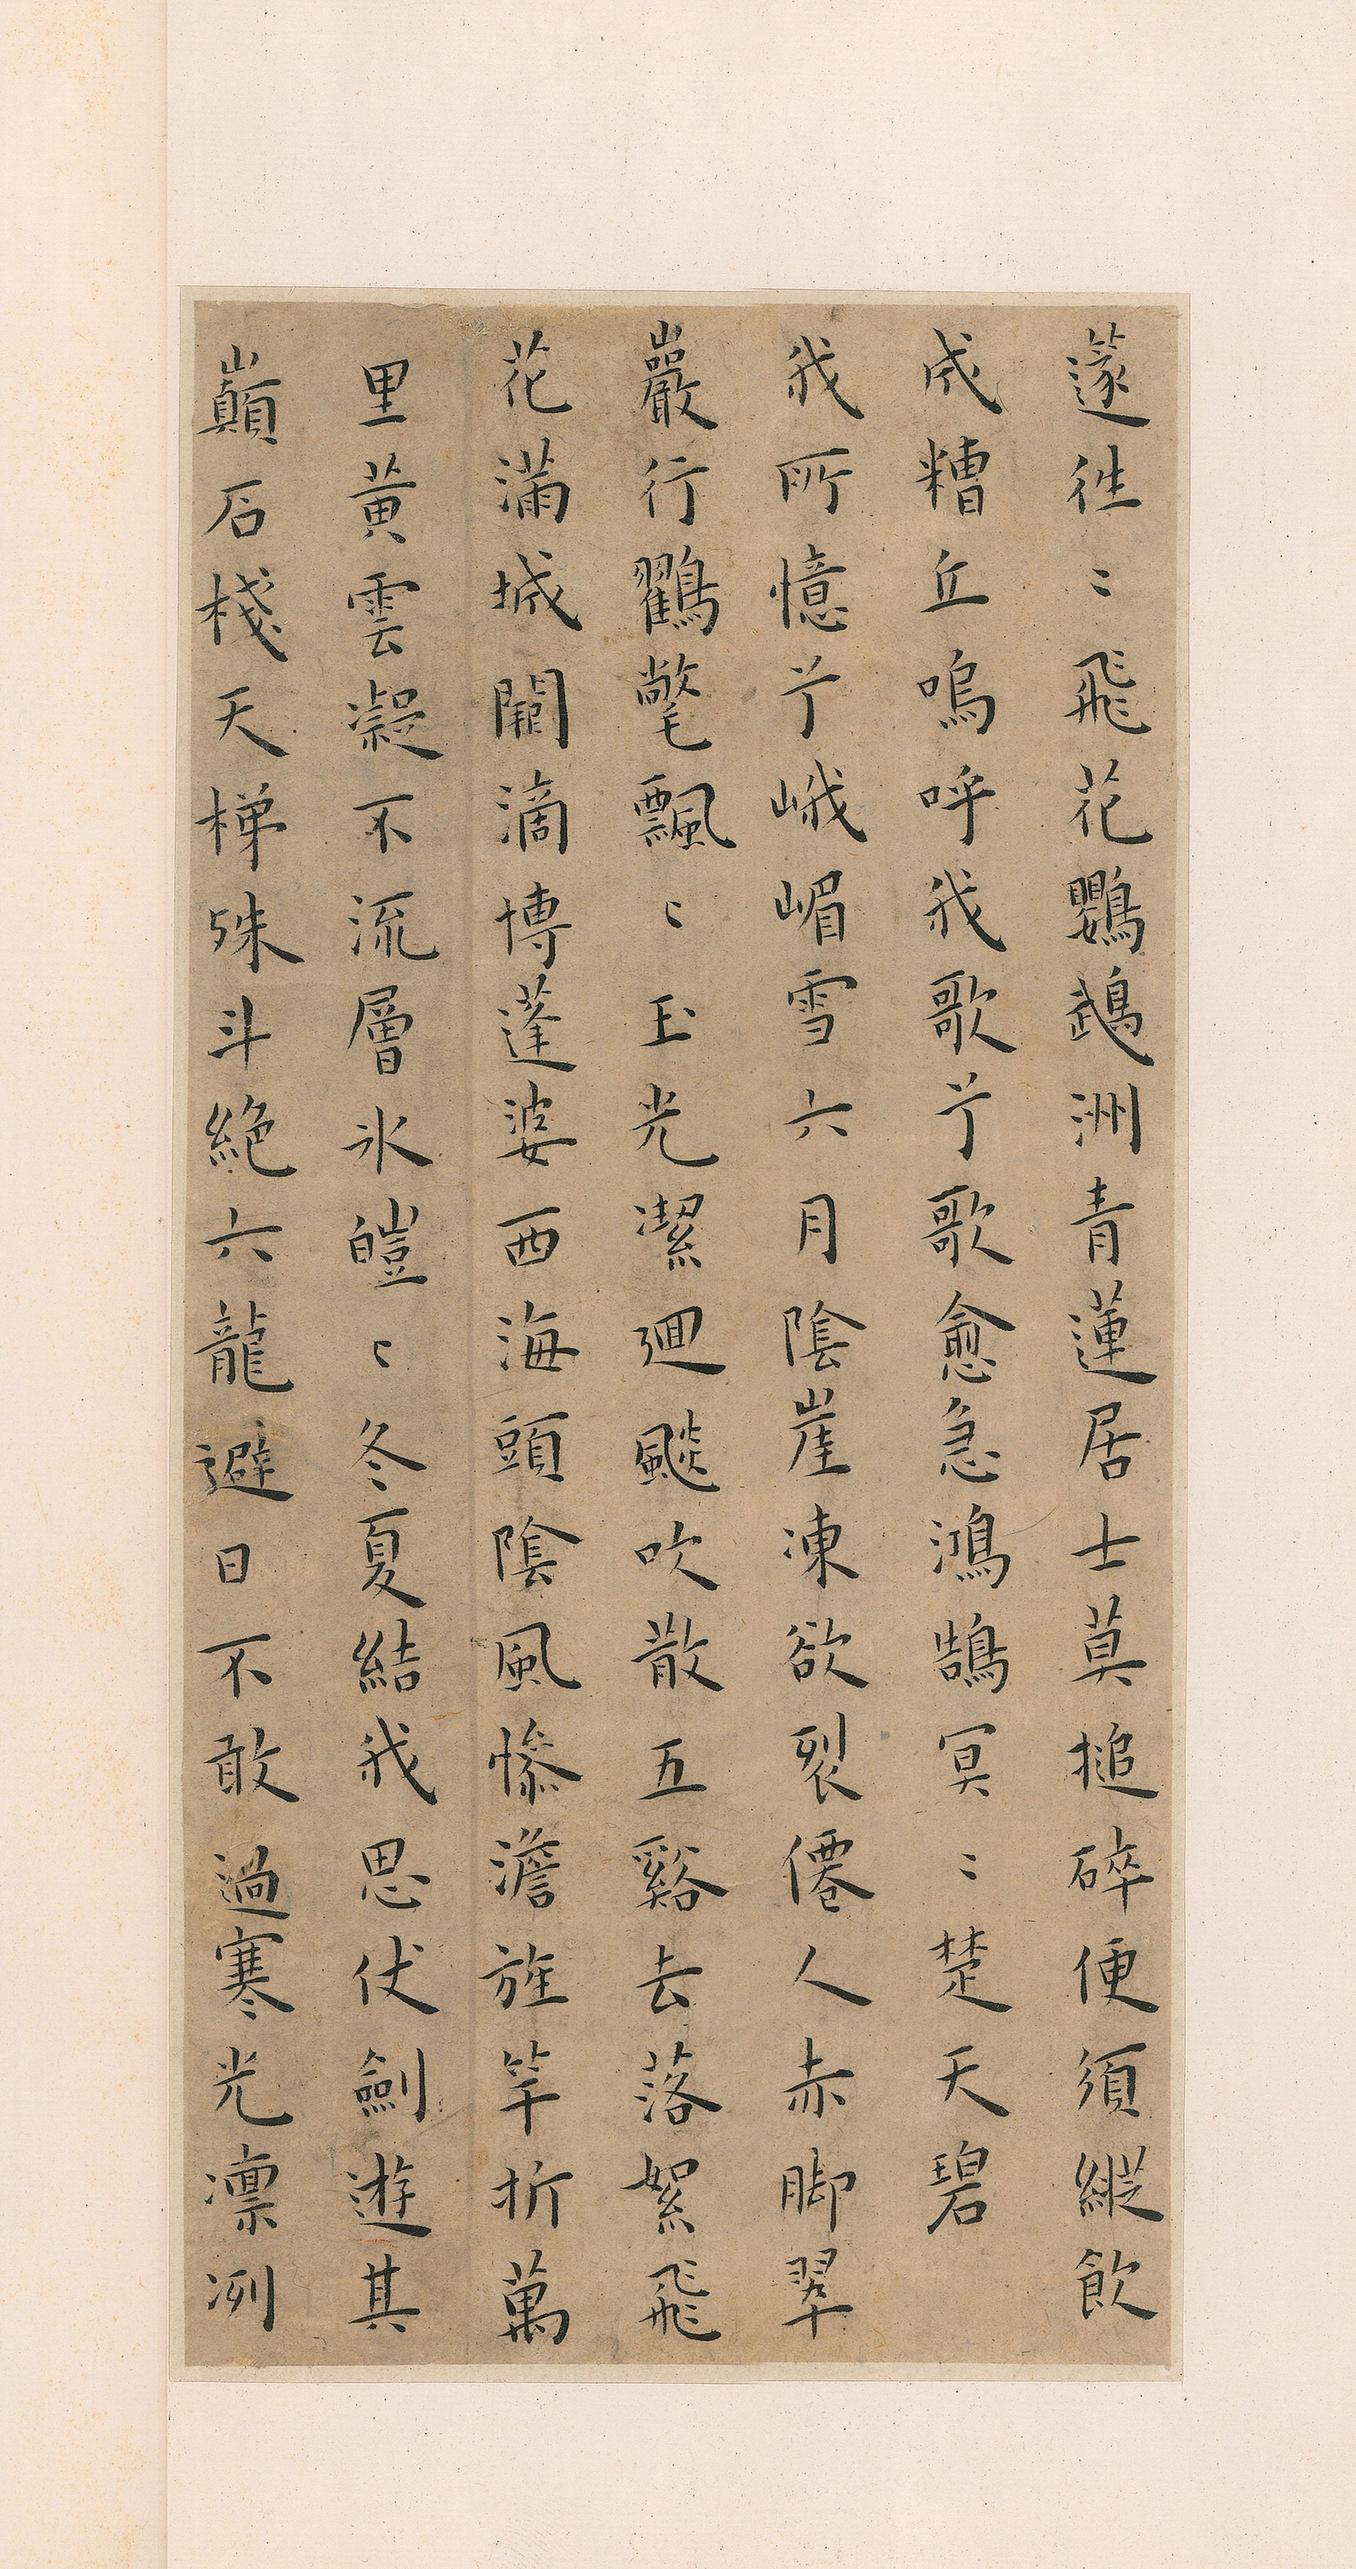 蓬徃〻飛花鸚鵡洲青蓮居士莫搥碎便須縱飲
成糟丘嗚呼我歌兮歌愈急鴻鵠冥〻楚天碧
我所憶兮峨嵋雪六月陰崖凍欲裂僊人赤脚翠
巖行鸛氅飄〻玉光潔迴颷吹散五谿去落絮飛
花滿城闕滴博蓬婆西海頭陰風慘澹旌竿折萬
里黄雲凝不流層氷皚〻冬夏結我思伏劍遊其
巔石棧天梯殊斗絶六龍避日不敢過寒光凛冽